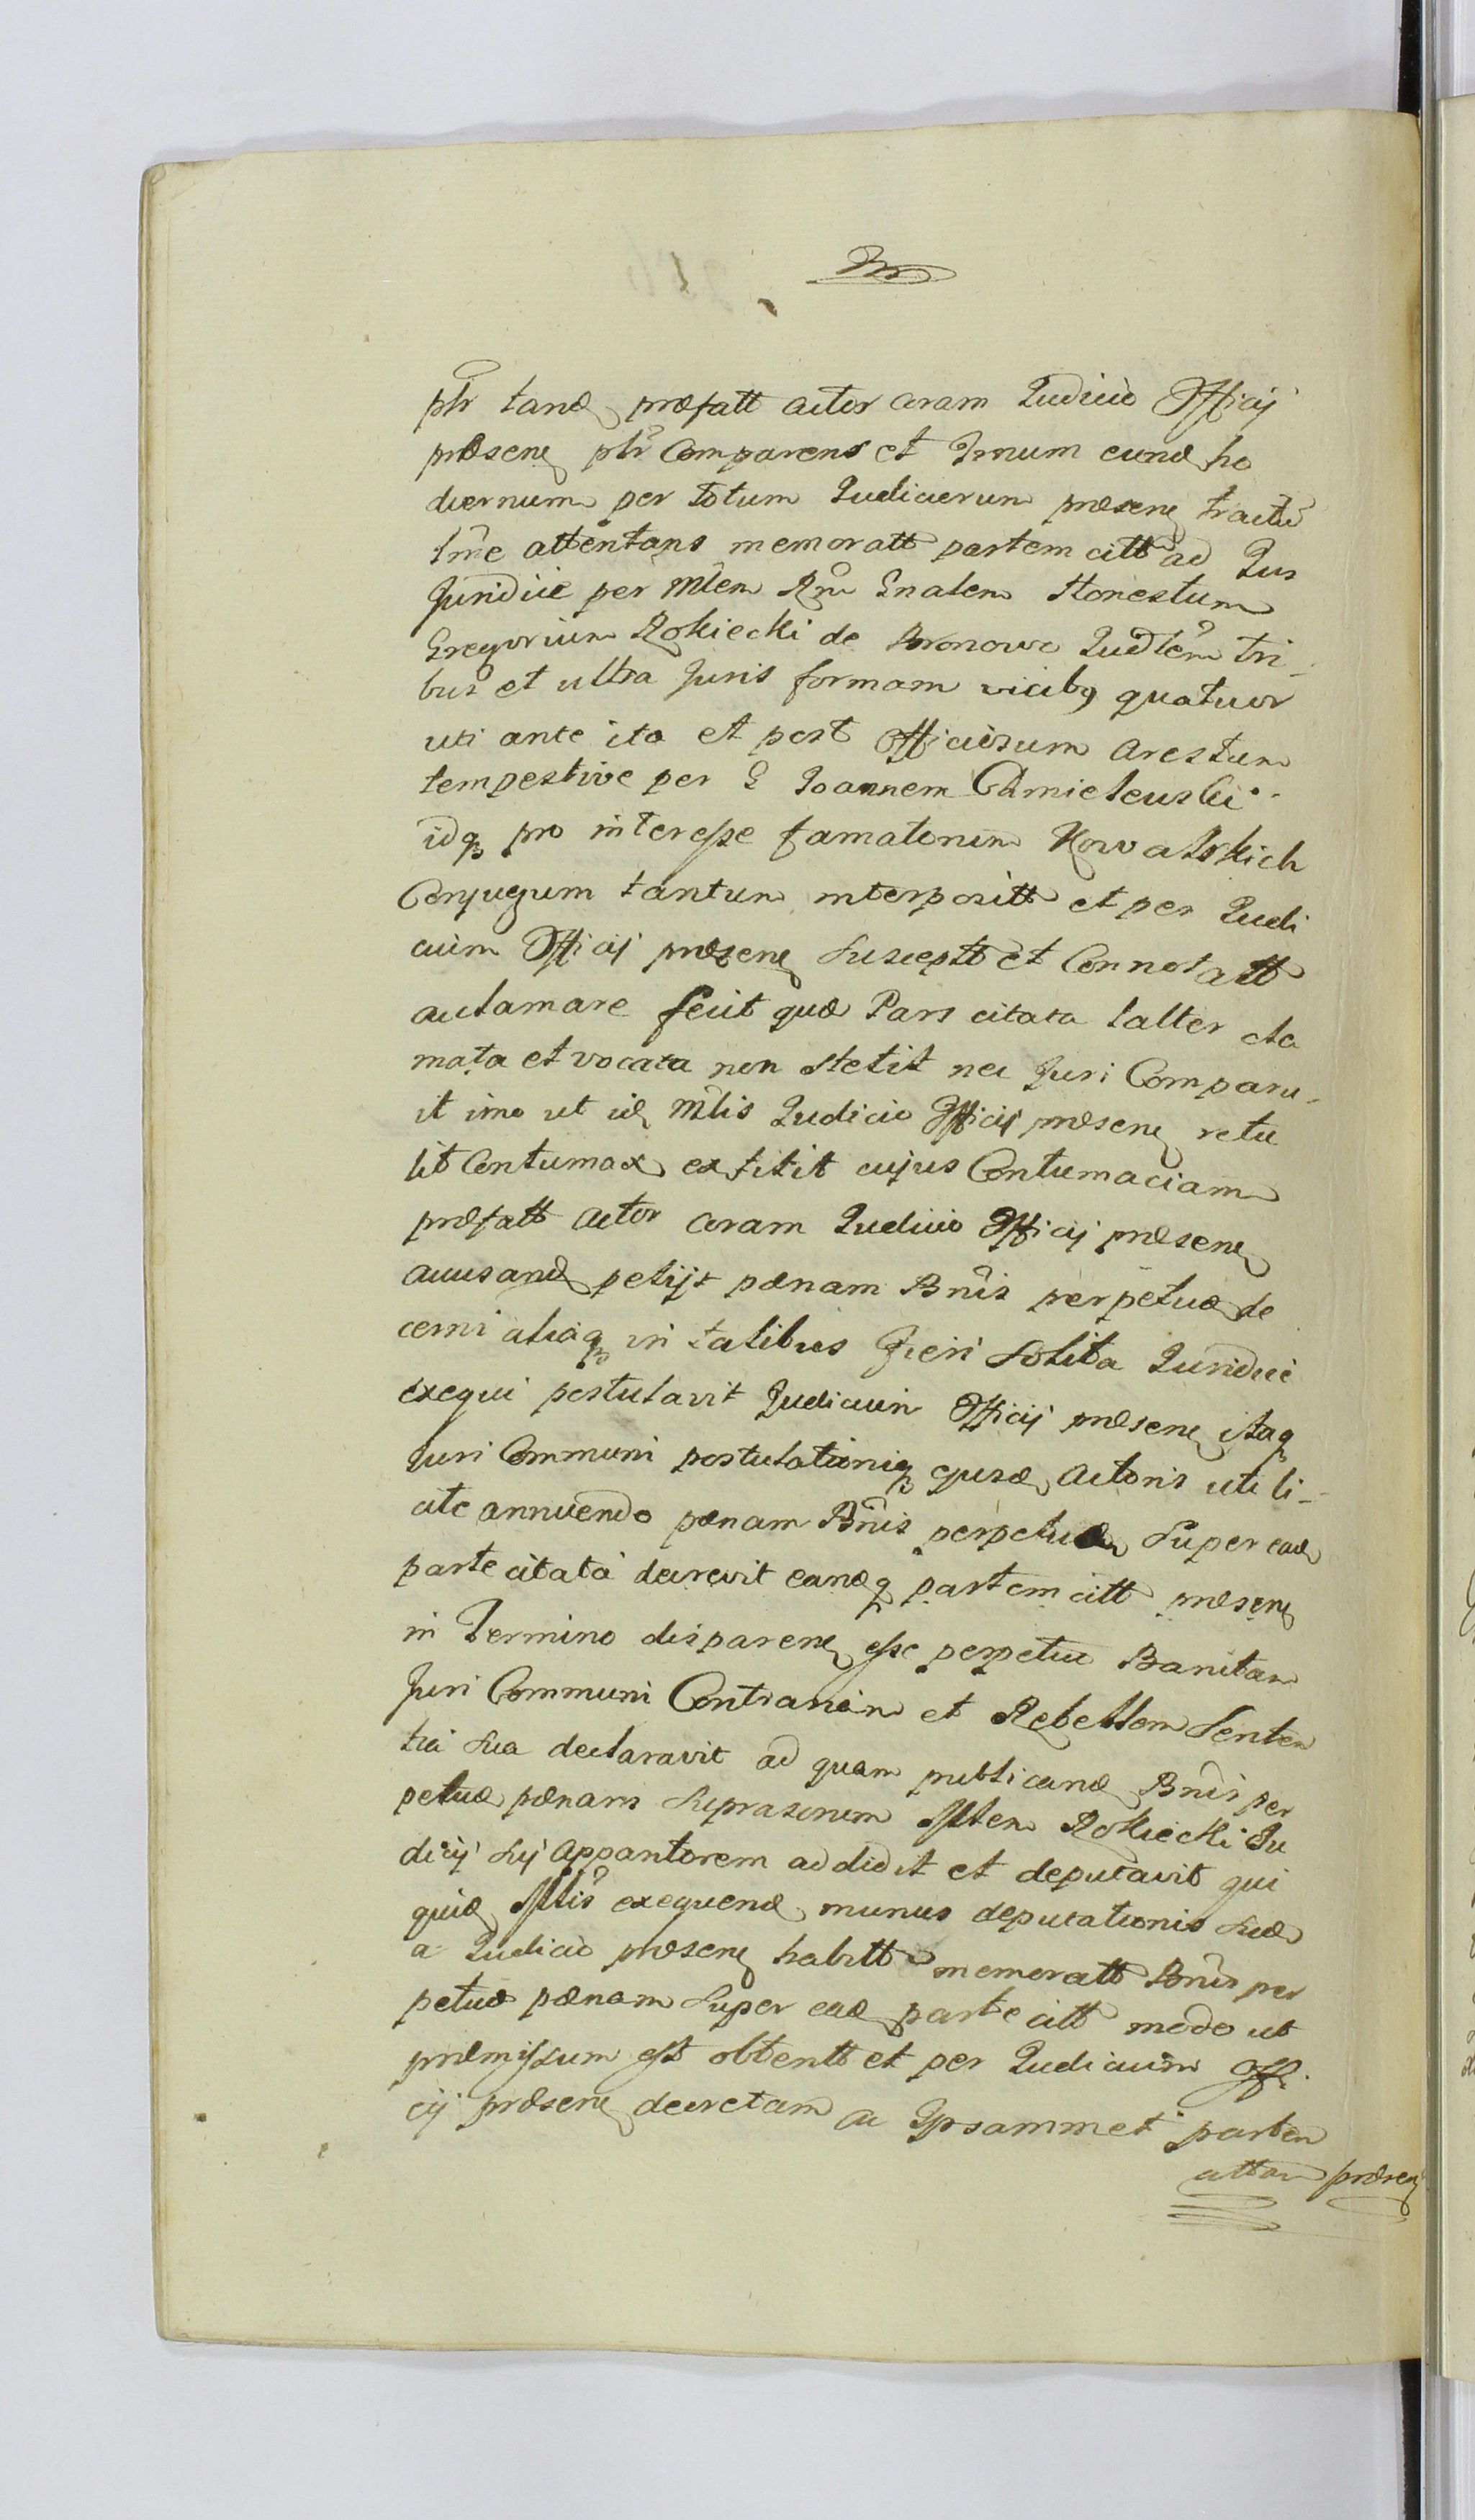 plr tand præfatt actor coram Judicio Officij
præsen plr Comparens et Tmum eund ho
diernum per totum Judiciorum præsen tractu
tme attentans memoratt partem citt ad Jus
Juridice per Mtem Rni Gnalem Honestum
Gregorium Rokiecki de Judtem tri-
bus et ultra Juris formam vicibq quatuor
uti ante ita et post Officiosum Arestum
tempestive per G Joannem Chmielewski
idq pro interesse famatorum Kowalskich
Conjugum tantum interpositt et per Judi
cium Officij præsen Susceptt et Connotatt
aclamare fecit quæ Pars citata taliter cla
mata et vocata non stetit nec Juri Comparu-
it imo ut id Mtlis Judicio Officij præsen retu
lit Contumax extitit cujus Contumaciam
præfatt Actor coram Judicio Officij præsen
accusand petijt pænam Bnis perpetuæ de
cerni aliaq in talibus fieri Solita Juridice
exequi postulavit Judicium Officij præsen itaq
Juri Communi postulationiq ejusd Actoris uti li-
cite annuendo pænam Bnis perpetuæ Super ead
parte citata decrevit eandq partem citt præsen
in Termino disparen esse perpetue Banitam
Juri Communi Contrariam et Rebellem Senten
tia Sua declaravit ad quam publicand Bnis per
petuæ pænam Suprascrium Mtem Rokiecki Ju
dicij Sui Appantorem addidit et deputavit qui
quid Mtlis exequend munus deputationis Suæ
a Judicio præsen habitt memoratt Bnis per
petuæ pænam Super ead parte citt modo ut
præmissum est obtentt et per Judicium Offi
cij præsen decretam ac Ipsammet partem
cittam præsen